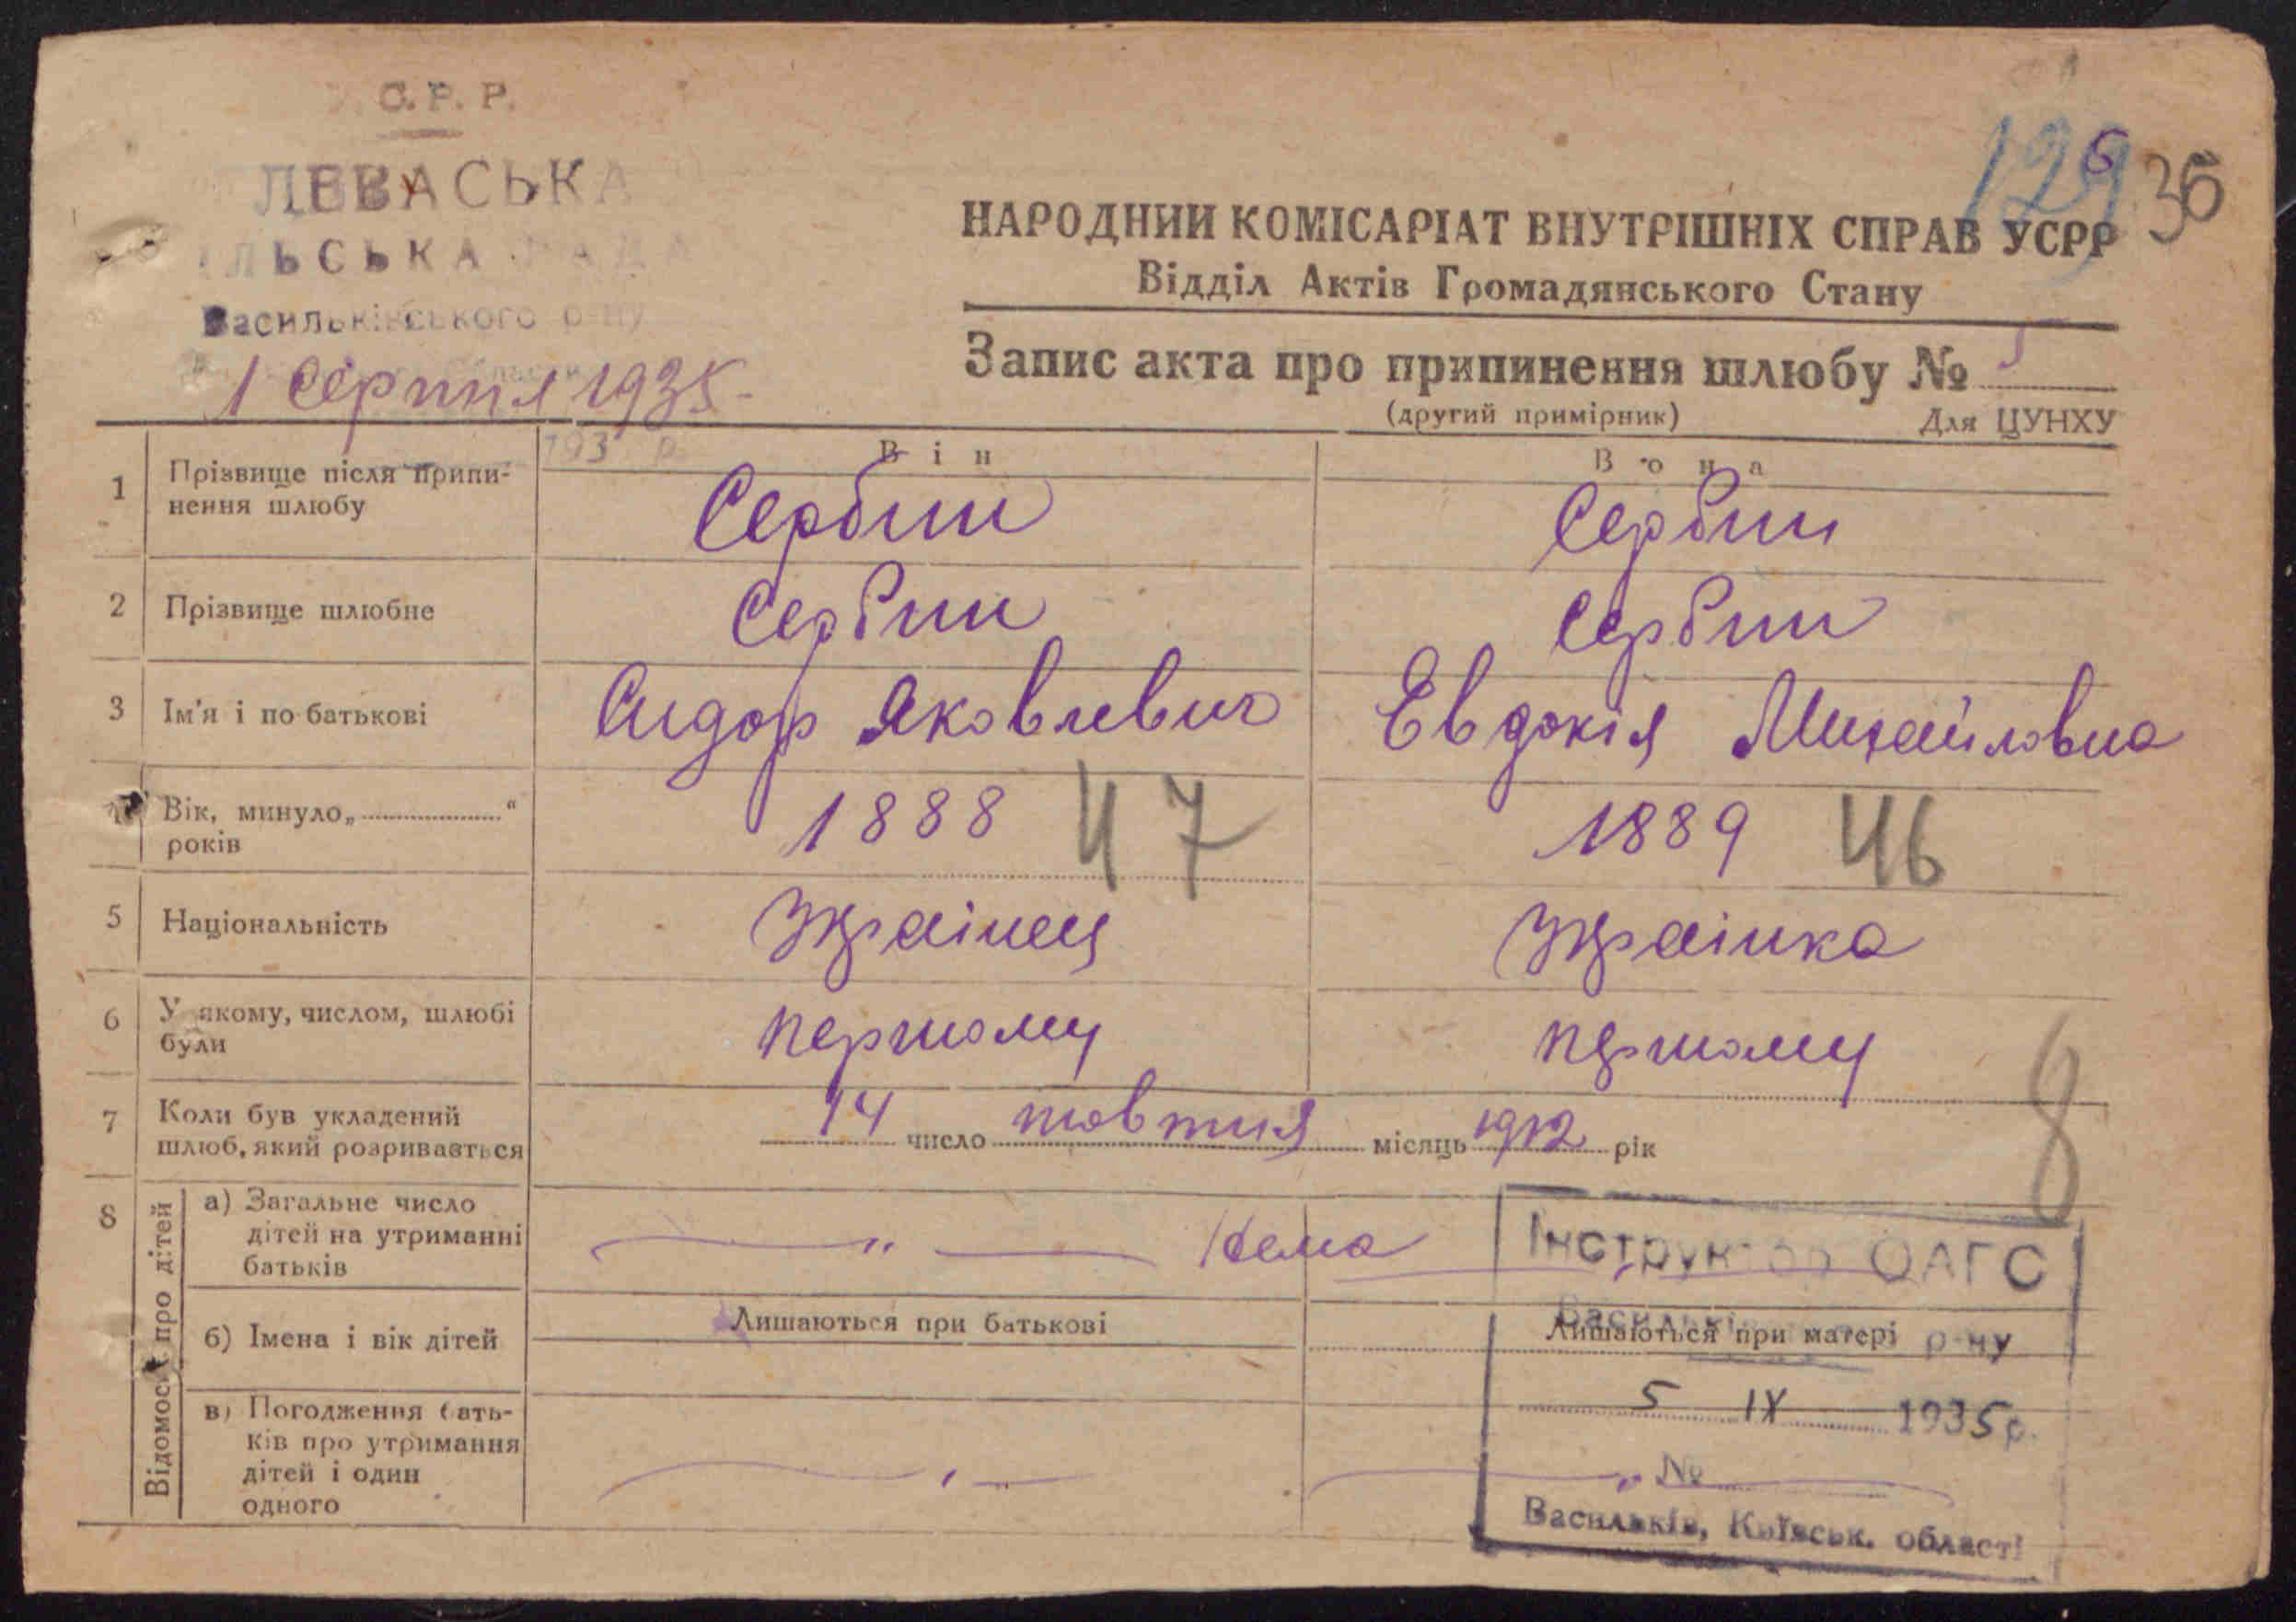 С. Р. Р.
ЛЕВАСЬКА
ІЛЬСЬКА РАДА
Васильківського р-ну
1 Серпня 1935.
193 р.
129
6
36
НАРОДНИЙ КОМІСАРІАТ ВНУТРІШНІХ СПРАВ УСРР
Відділ Актів Громадянського Стану
Запис акта про припинення шлюбу № 5
(другий примірник) Для ЦУНХУ
Він Вона
1 Прізвище після припи-
нення шлюбу
Сербин Сербин
2 Прізвище шлюбне Сербин Сербин
3 Ім'я і по-батькові Сидор Яковлевич Евдокія Михайловна
Вік, минуло „ “
років
1888 47 1889 46
5 Національність Українец Українка
6 У якому, числом, шлюбі
були
першому першому
7 Коли був укладений
шлюб, який розривається
14 число жовтня місяць 1912 рік
8
8 Відомості про дітей
а) Загальне число
дітей на утриманні
батьків
—— „ —— Нема
б) Імена і вік дітей Лишаються при батькові Лишаються при матері
в) Погодження бать-
ків про утримання
дітей і один
одного
Інструктор ОАГС
Васильків р-ну
5 IX 1935 р.
№
Васильків, Київськ. області